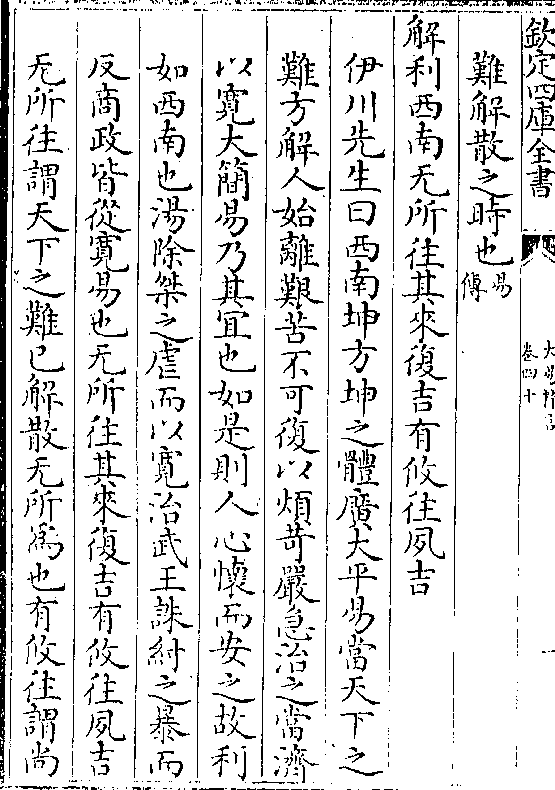 欽定四庫全書
大易粹言
卷四十
難解散之時也易傳
解利西南无所往其來復吉有攸往夙吉
伊川先生曰西南坤方坤之體廣大平易當天下之
難方解人始離艱苦不可復以煩苛嚴急治之當濟
以寛大簡易乃其宜也如是則人心懷而安之故利
如西南也湯除桀之虐而以寛治武王誅紂之暴而
反商政皆從寛易也无所往其來復吉有攸往夙吉
无所往謂天下之難已解散无所爲也有攸往謂尚